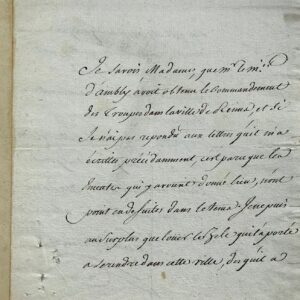 Je savois Madame, que Mr. le Mis.
d'ambly avoit obtenu le commandement
des Troupes dans la ville de Reims, et si
Je n'ai pas repondu aux lettres qu'il m'a
écrittes précédamment, c'est parce que les
émeutes qui y avoient donné lieu, n'ont
point eu de suites dans le tems. Je ne puis
au surplus que louer le Zele qui l'a porté
a se rendre dans cette ville, dès qu'il a